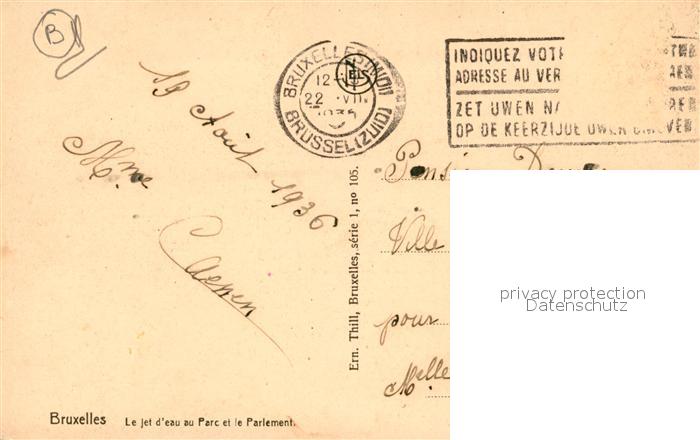 B
BRUXELLES (MIDI)
12-
22 VII
193
BRUSSEL (ZUID)
INDIQUEZ VOT
ADRESSE AU VER
ZET UWEN N
OP DE KEERZIJDE UWER
19 Août 1936
Mme
Ern. Thill, Bruxelles, série 1, no 105.
Ville
pour
Melle
privacy protection
Datenschutz
Bruxelles Le jet d'eau au Parc et le Parlement.